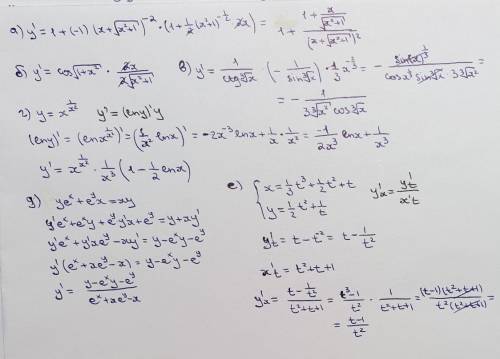 а) y' = 1 + (-1) (x+√(x²+1))⁻² · (1 + 1/2 (x²+1)^(-1/2) · 2x) = 1 + (1 + x/√(x²+1))/(x+√(x²+1))²
б) y' = cos√(1+x²) · 2x/(2√(x²+1))
в) y' = 1/(ctg ∛x) · (- 1/(sin²∛x)) · 1/3 x^(-2/3) = - (sin(x)^(1/3))/(cos x^(1/3) sin²∛x · 3∛x²) =
= - 1/(3∛x² cos∛x)
г) y = x^(1/x²) y' = (lny)'y
(lny)' = (lnx^(1/x²))' = (1/x² lnx)' = -2x⁻³ lnx + 1/x · 1/x² = -1/(2x³) lnx + 1/x³
y' = x^(1/x²) · 1/x³ (1 - 1/2 lnx)
д) yeˣ + eʸx = xy
y'eˣ + eˣy + eʸy'x + eʸ = y + xy'
y'eˣ + y'xeʸ - xy' = y - eˣy - eʸ
y'(eˣ + xeʸ - x) = y - eˣy - eʸ
y' = (y - eˣy - eʸ)/(eˣ + xeʸ - x)
е) { x = 1/3 t³ + 1/2 t² + t
y = 1/2 t² + 1/t
y'x = y't/x't
y't = t - t⁻² = t - 1/t²
x't = t² + t + 1
y'x = (t - 1/t²)/(t² + t + 1) = (t³ - 1)/t² · 1/(t² + t + 1) = ((t-1)(t² + t + 1))/(t²(t² + t + 1)) =
= (t-1)/t²